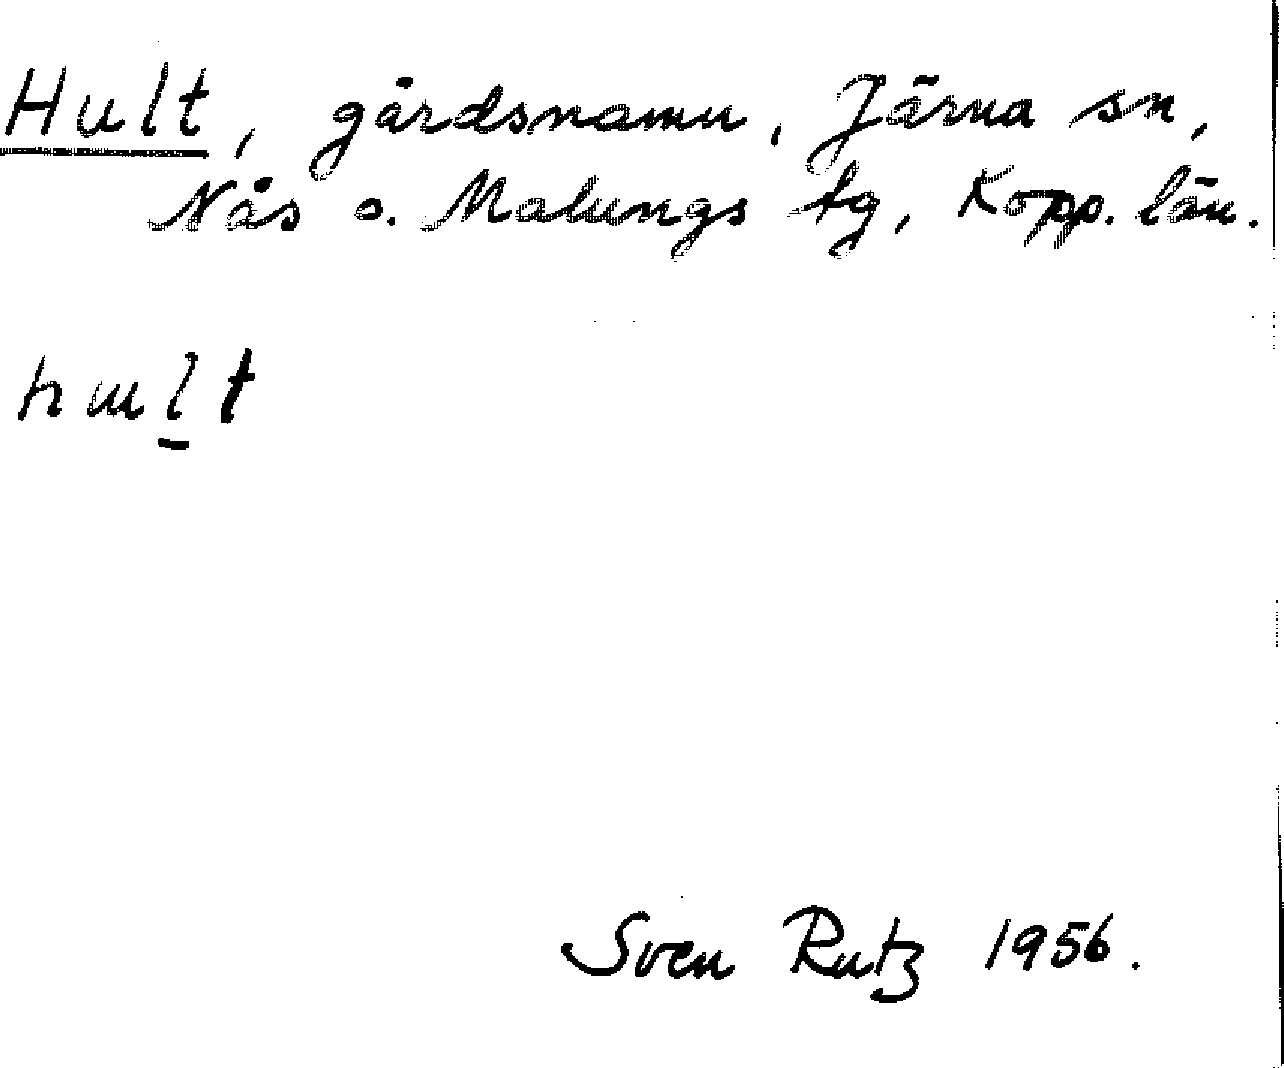 Hult, gårdsnamn, Järna sn,
Nås o. Malungs tg, Kopp. län.
hult
Sven Rutz 1956.